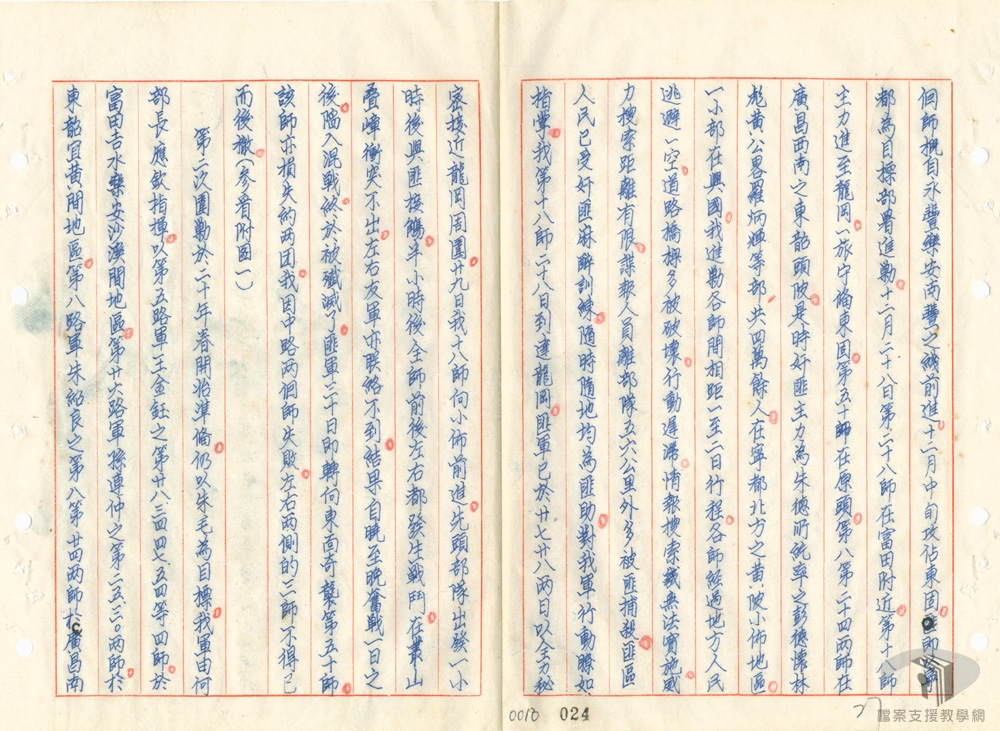 個師概自永豐樂安南豐之綫前進十二月中旬攻佔東固即以寧
都為目標部署進勦十二月二十八日第二十八師在富田附近第十八師
主力進至龍岡一旅守備東固第五十師在原頭第八第二十四兩師在
廣昌西南之東韶頭陂是時奸匪主力為朱德所統率之彭德懷林
彪黃公畧羅炳輝等部共四萬餘人在寧都北方之黃陂小佈地區
一小部在興國我進勦各師間相距一至二日行程各師經過地方人民
逃避一空道路橋樑多被破壞行動遲滯情報搜索幾無法實施威
力搜索距離有限諜報人員離部隊五六公里外多被匪捕殺匪區
人民已受奸匪麻醉訓練隨時隨地均為匪助對我軍行動瞭如
指掌我第十八師二十八日到達龍岡匪軍已於廿七廿八兩日以全力秘
密接近龍岡周圍廿九日我十八師向小佈前進先頭部隊出發一小
時後與匪接觸半小時後全師前後左右都發生戰鬥在叢山
叠嶂衝突不出左右友軍亦联絡不到結果自曉至晚奮戰一日之
後陷入混戰終於被殲滅了匪軍三十日即轉向東面奇襲第五十師
該師亦損失約两团我因中路两個師失敗左右两側的三師不得已
而後撤(參看附图一)
第二次圍勦於二十年春開始準備仍以朱毛為目標我軍由何
部長應欽指揮以第五路軍王金鈺之第廿八、三四、四七、五四等四師於
富田吉水樂安沙溪間地區第廿六路軍孫連仲之第二五、三〇两師於
東韶宜黃間地區第八路軍朱紹良之第八第廿四两師於廣昌南
0018 024
檔案支援教學網